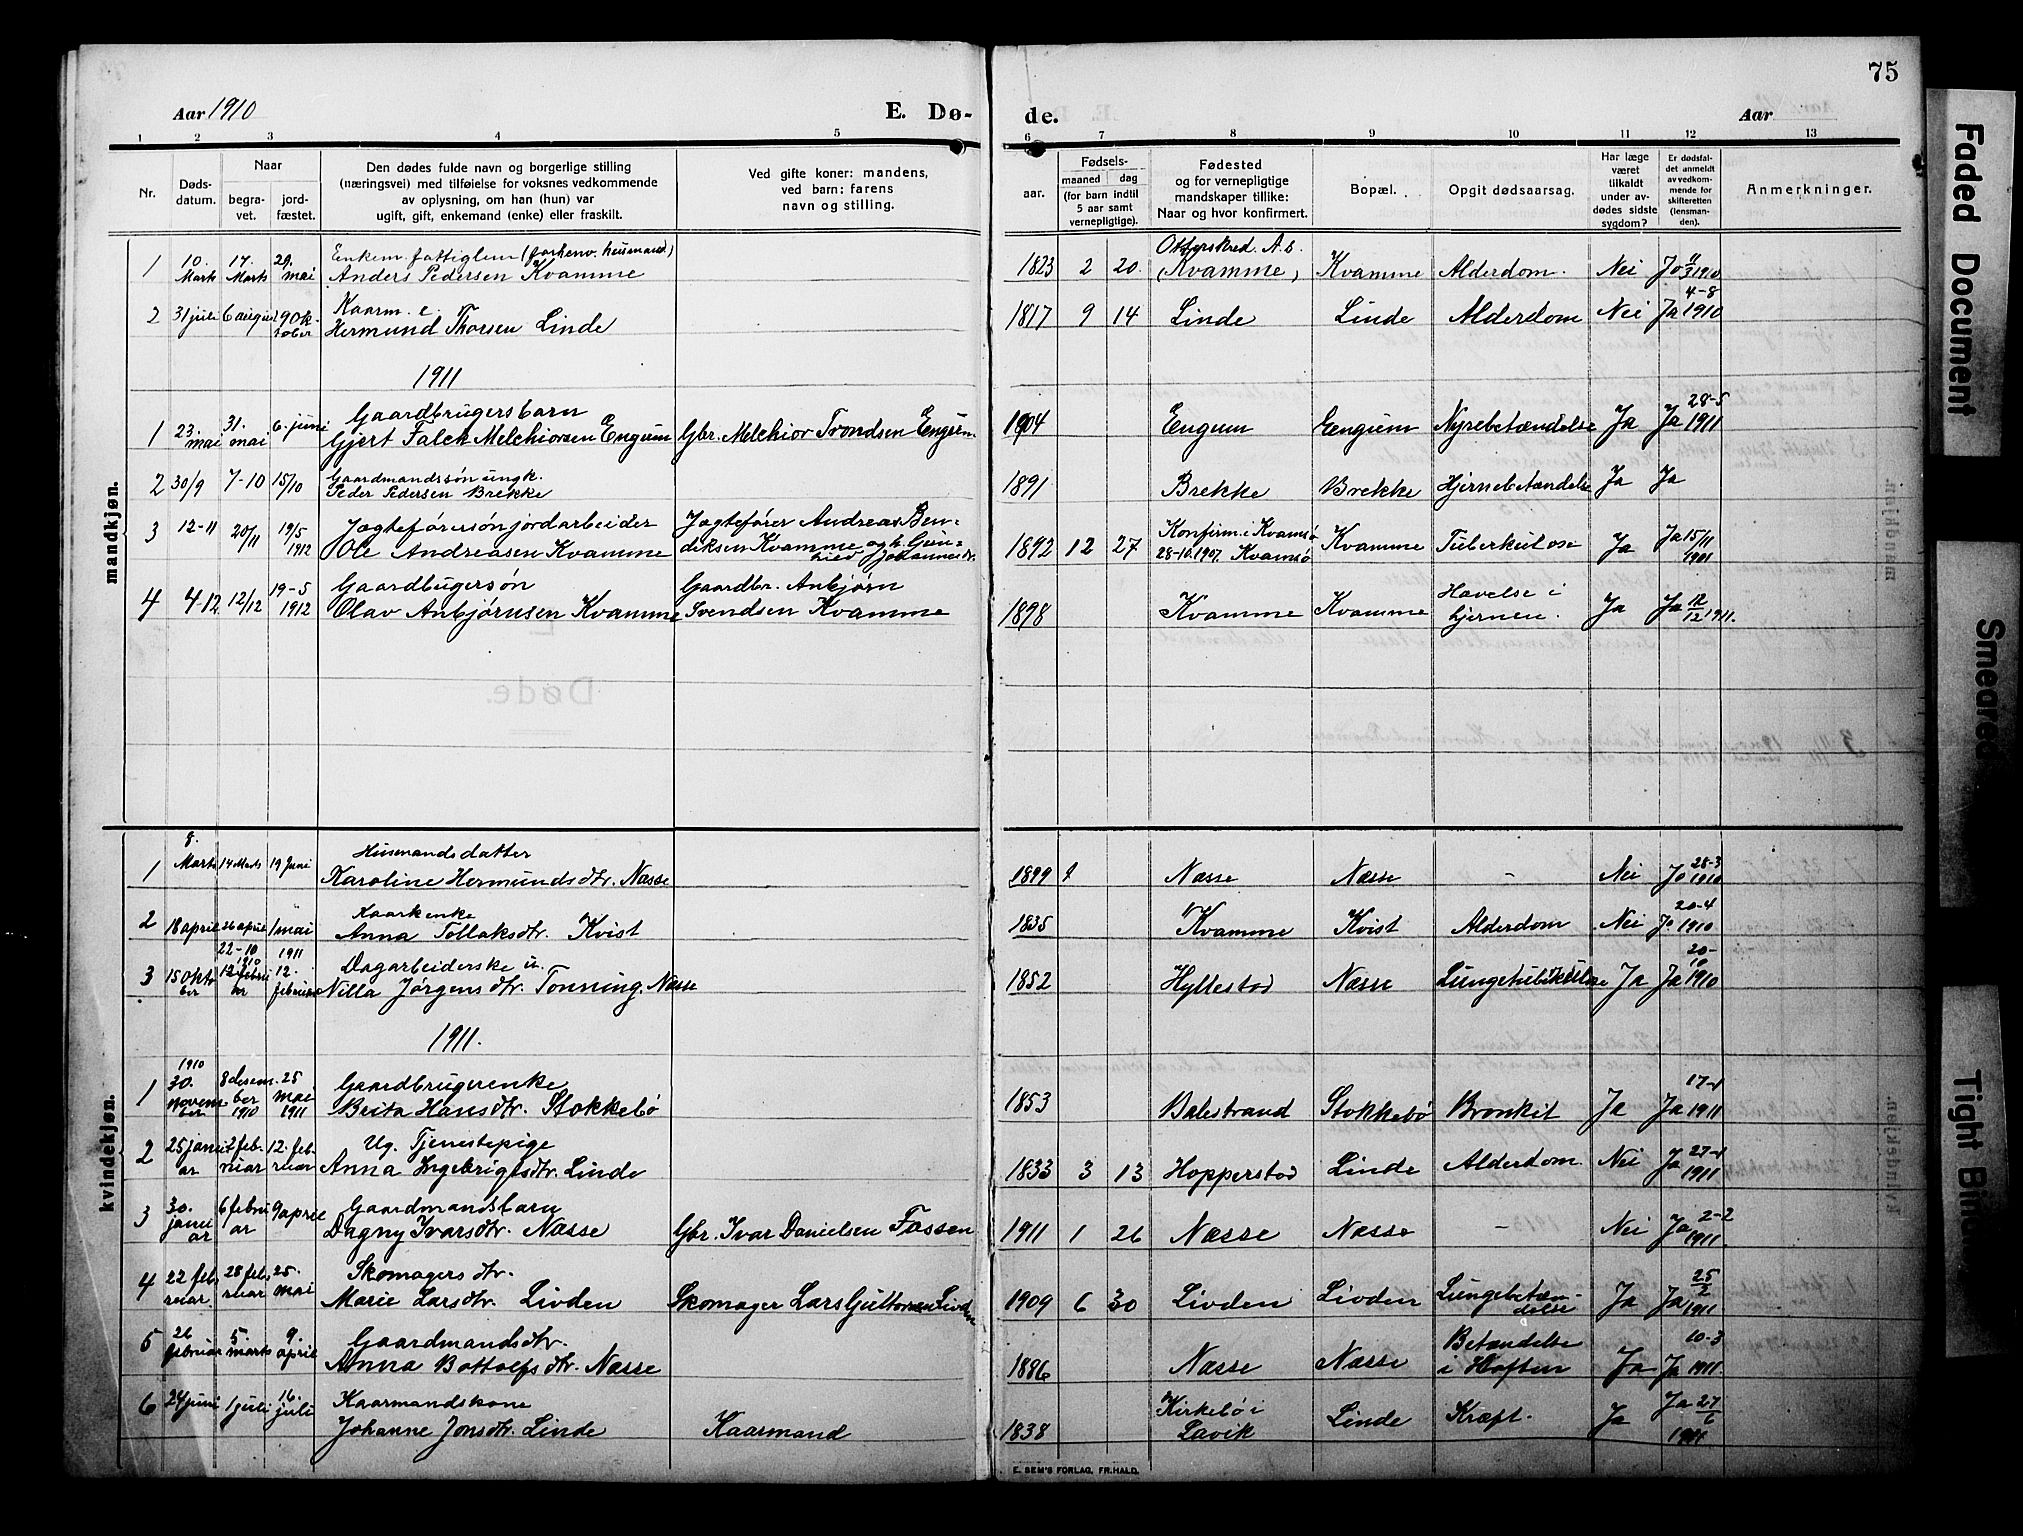 75
Aar 1910
E. Dø-
de.
Aar
1 2 3 4 5 6 7 8 9 10 11 12 13
Nr.
Døds-
datum.
Naar
begra-
vet.
jord-
fæstet.
Den dødes fulde navn og borgerlige stilling
(næringsvei) med tilføielse for voksnes vedkommende
av oplysning, om han (hun) var
ugift, gift, enkemand (enke) eller fraskilt.
Ved gifte koner: mandens,
ved barn: farens
navn og stilling.
Fødsels-
aar.
maaned
dag
(for barn indtil
5 aar samt
vernepligtige).
Fødested
og for vernepligtige
mandskaper tillike:
Naar og hvor konfirmert.
Bopæl.
Opgit dødsaarsag.
Har læge
været
tilkaldt
under av-
dødes sidste
sygdom?
Er dødsfal-
det anmeldt
av vedkom-
mende for
skifteretten
(lensman-
den).
Anmerkninger.
mandkjøn.
1 10. Mark 17. Marts 29. mai Enkem. fattiglem (forhenv. husmand)
Anders Pedersen Kvamme 1823 2 20. (Kvamme) Kvamme Alderdom. Nei Ja 11/3 1910
2 31 juli 6 august Kaarm. e.
Hermund Thorsen Linde 1817 9 14 Linde Linde Alderdom Nei Ja 4-8 1910
1911
1 23. mai 31. mai 6. juni Gaardbrugersbarn
Gjert Falck Melchiorsen Engum Gbr. Melchior Trondsen Engum 1904 Engum Engum Nyrebetændelse Ja Ja 28-5 1911
2 30/9 7-10 15/10 Gaardmandssøn ungk.
Peder Pedersen Brekke 1891 Brekke Brekke Hjernebetændelse Ja Ja
3 12-11 20/11 19/5 1912 Jægteførersøn jordarbeider
Ole Andreasen Kvamme Jægtefører Andreas Ben-
diksen Kvamme 1892 12 27 Konfirm. i Kvamsø
28-10.1907. Kvamsø Kvamme Tuberkulose Ja Ja 15/11 1901
4 4-12 12/12 19-5 1912 Gaardbugersøn
Olav Anbjørnsen Kvamme Gaardbr. Anbjørn
Svendsen Kvamme 1898 Kvamme Kvamme Hævelse i
hjernen. Ja Ja 12/12 1911.
kvindekjøn.
1 8. Marts 14 Marts 19 Juni Husmandsdatter
Karoline Hermundsdtr. Næsse 1899 Næsse Næsse - Nei Ja 28-3 1910
2 18 april 26 april 1 mai Kaarkenke
Anna Tollaksdtr. Kvist 1835 Kvamme Kvist Alderdom Nei Ja 20-4 1910
3 15 Oktober 22-10 1910 12 februar 1911 12. februar Dagarbeiderske u.
Nilla Jørgensdtr. Tonning. Næsse 1852 Hyllestad Næsse Ja Ja 20-10 1910
1911.
1 1910 30. november 8 desember 1910 25 mai 1911 Gaardbrugerenke
Brita Hansdtr. Stokkebø 1853 Balestrand Stokkebø Bronkit Ja Ja 17-1 1911
2 25 januar 2 februar 12. februar Ug. Tjenestepige
Anna Ingebrigtsdtr. Linde 1833 3 13 Hopperstad Linde Alderdom. Nei Ja 27-1 1911
3 30. januar 6 februar 9 april Gaardmandsbarn
Dagny Ivarsdtr. Næsse Gbr. Ivar Danielsen Fossen 1911 1 26 Næsse Næsse - Nei Ja 2-2 1911.
4 22 februar 28 februar 25. mai Skomagers dtr.
Marie Larsdtr. Livden Skomager Lars Guttormsen Livden 1909 6 30 Livden Livden Lungebetæn-
delse Ja Ja 25/2 1911
5 26 februar 5. marts 9. april Gaardmandsdtr.
Anna Bottolfsdtr. Næsse 1886 Næsse Næsse Betændelse
i Hoften Ja Ja 10-3 1911.
6 24 juni 1 juli 16. juli Kaarmandskone
Johanne Jonsdtr. Linde Kaarmand 1838 Kirkebø i
Lavik Linde Kræft. Ja Ja 27/6 1911
E. SEM'S FORLAG, FR.HALD.
Faded Document
Smeared
Tight Bind